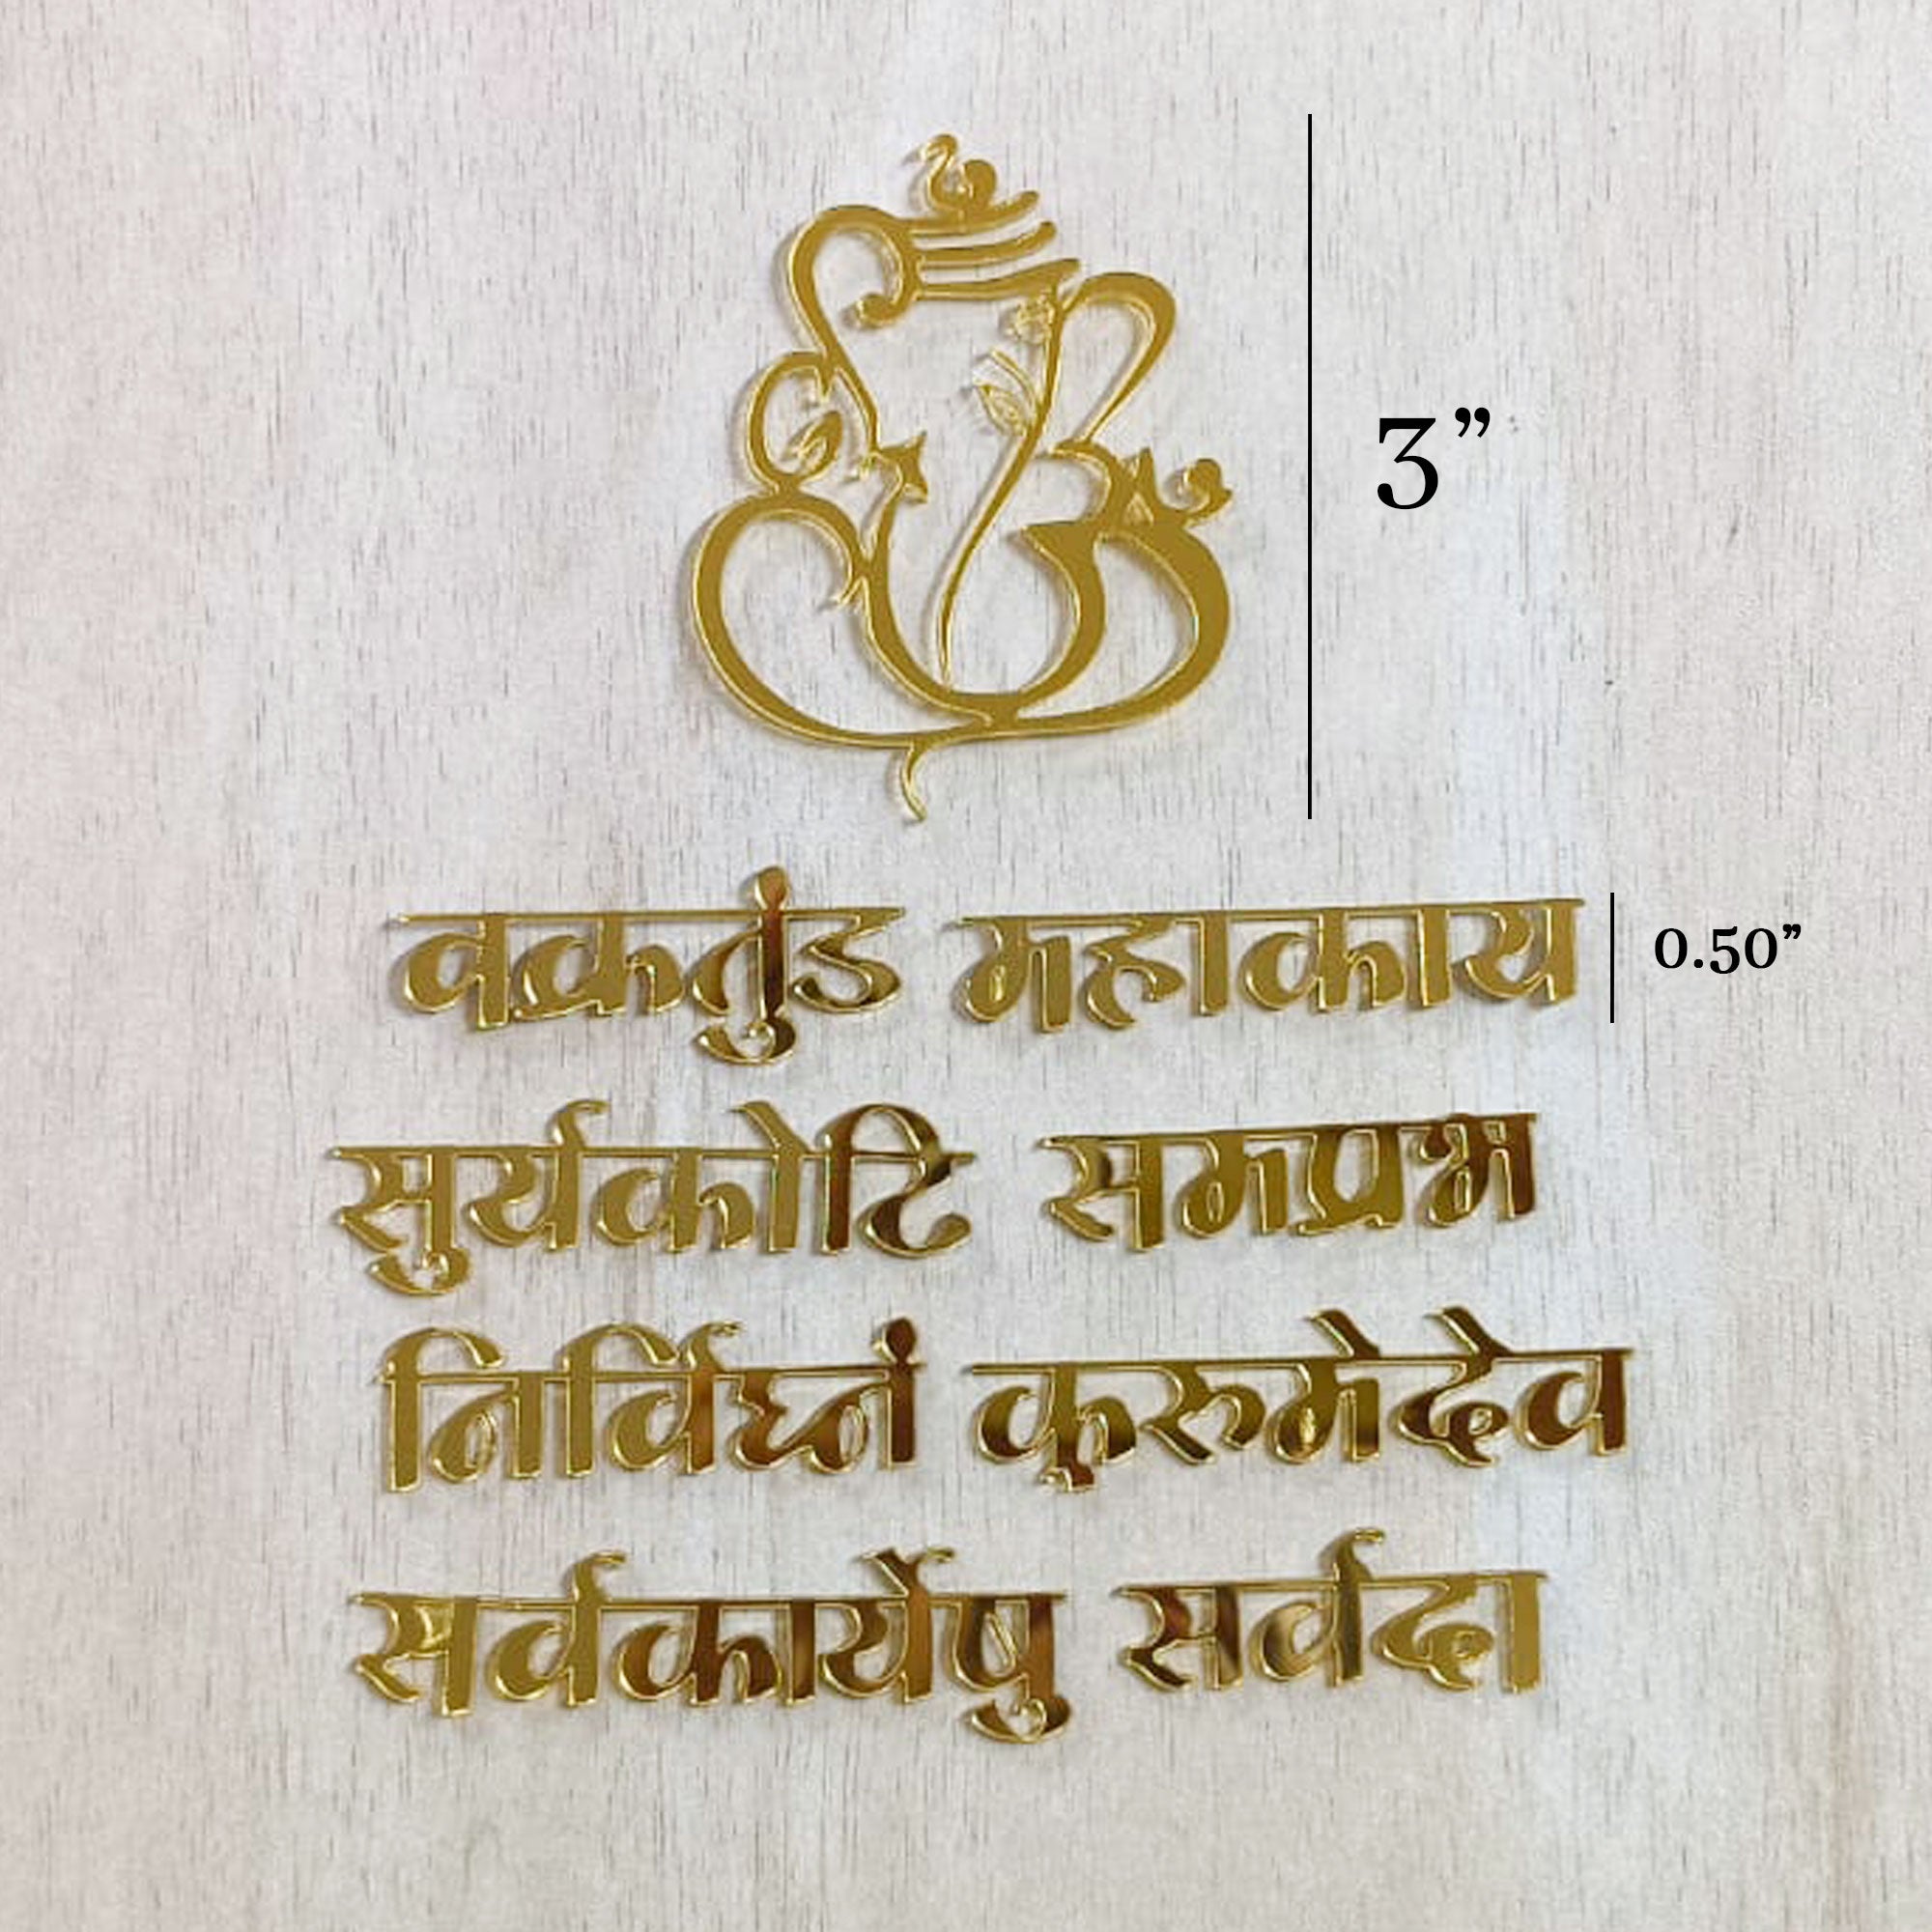 3”
वक्रतुंड महाकाय
0.50”
सुर्यकोटि समप्रभ
निर्विघ्नं कुरुमेदेव
सर्वकार्येषु सर्वदा